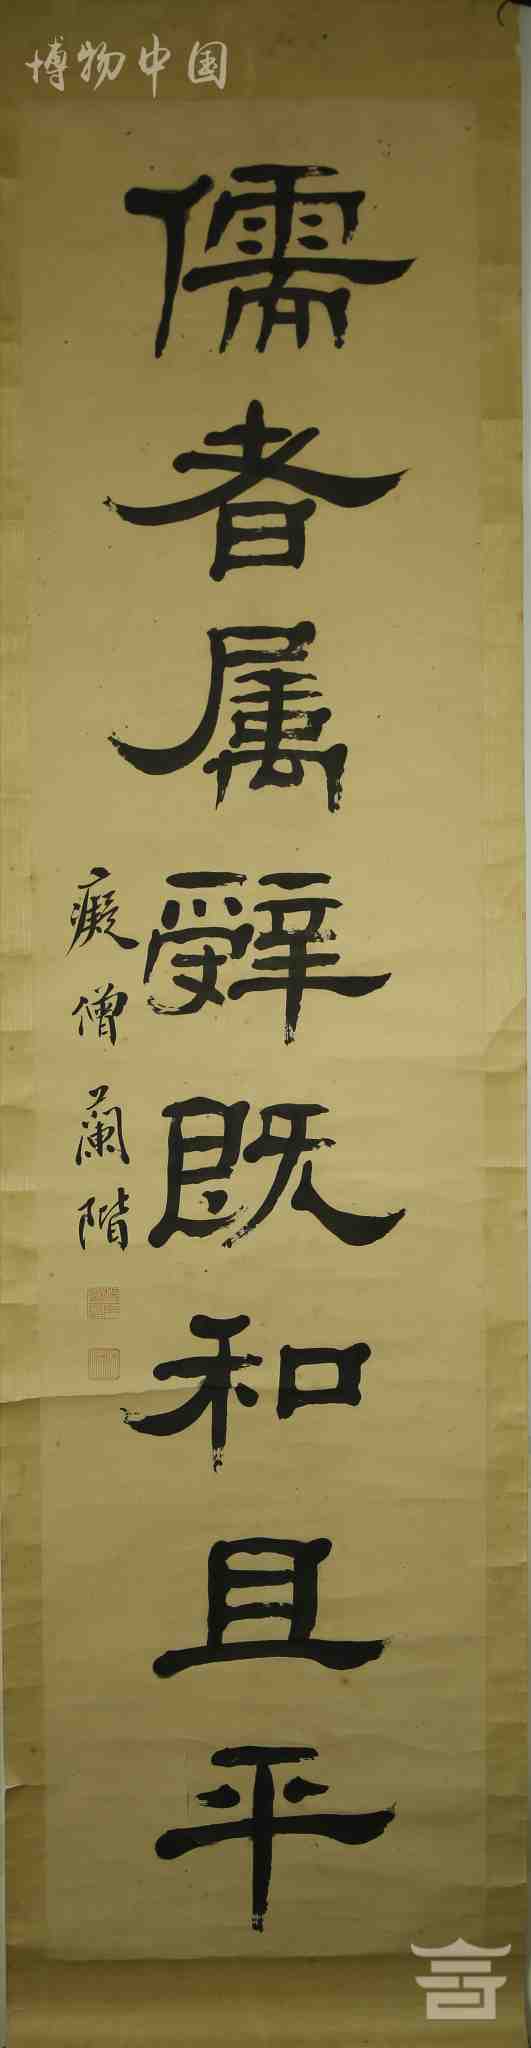 博物中国
儒者属辞既和且平
癡僧蘭階